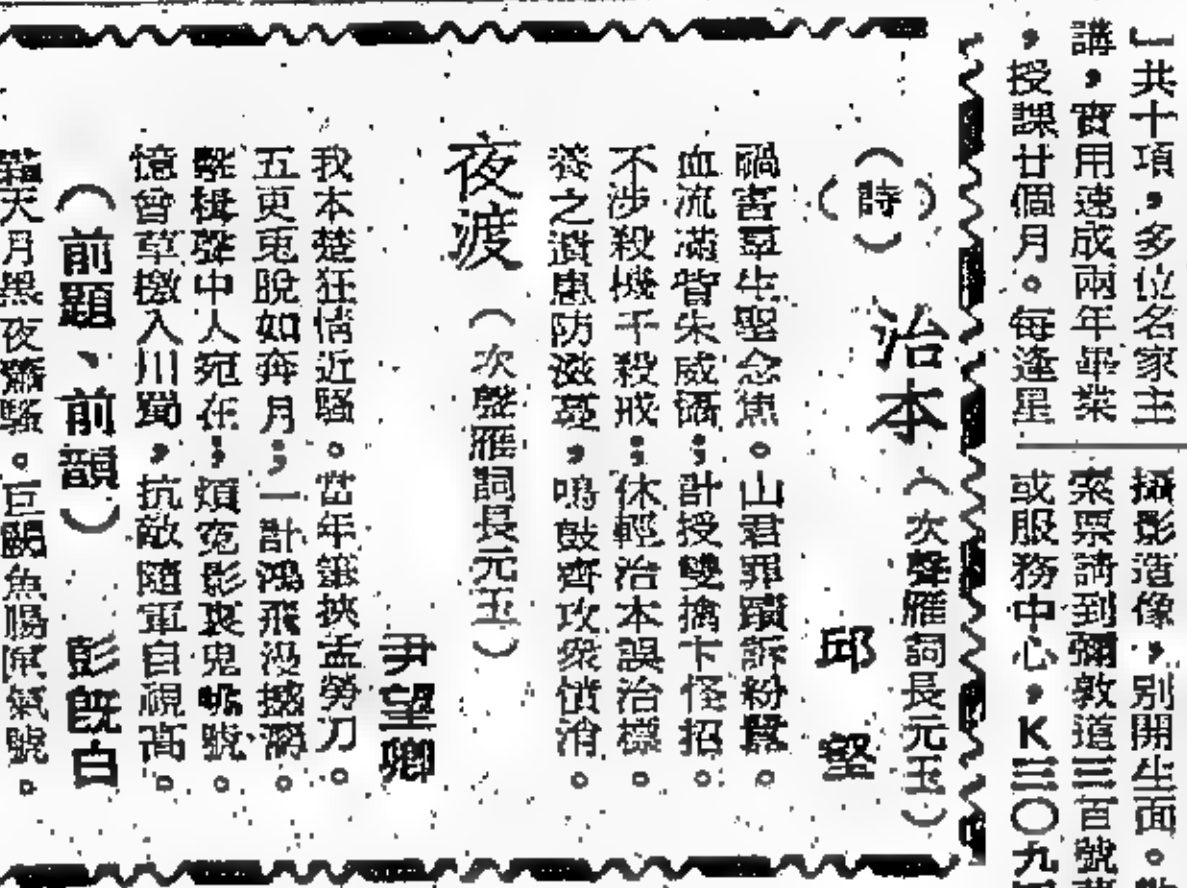 」共十項，多位名家主
講，實用速成兩年畢業
，授課廿個月。每逢星
攝影造像，別開生面。
索票請到彌敦道三百號
或服務中心，K三〇九
（詩）
治本（次聲雁詞長元玉）
邱 壑
禍害羣生聖念焦。山君罪蹟訴紛囂。
血流滿眥朱威懾；計授雙擒卞怪招。
不涉殺機千殺戒；休輕治本誤治標。
養之遺患防滋蔓，鳴鼓齊攻衆憤消。
夜渡（次聲雁詞長元玉）
尹望卿
我本楚狂情近騷。當年鋏挾孟勞刀。
五更兎脫如奔月；一計鴻飛沒撼濤。
擊楫聲中人宛在；煩寃影裏鬼號。
憶曾草檄入川蜀，抗敵隨軍自視高。
（前題、前韻）
彭旣白
天月黑夜驚騷。巨闕魚腸氣號。